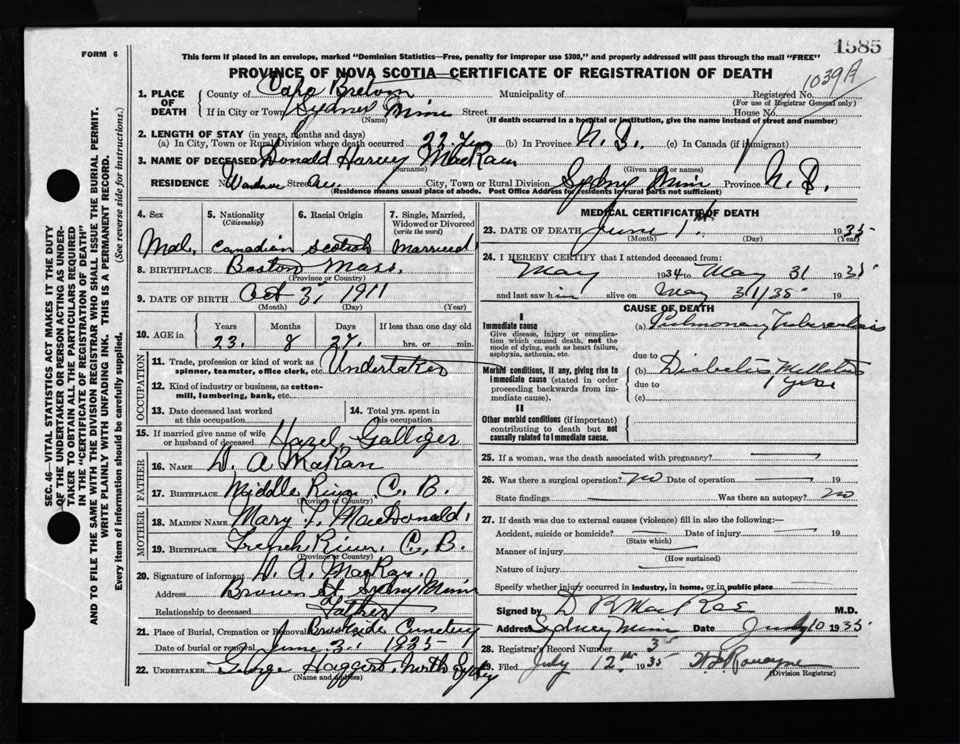 1585
FORM 6
This form if placed in an envelope, marked "Dominion Statistics—Free, penalty for improper use $300," and properly addressed will pass through the mail "FREE"
PROVINCE OF NOVA SCOTIA—CERTIFICATE OF REGISTRATION OF DEATH
1039A
1. PLACE OF DEATH
County of Cape Breton Municipality of Registered No.
(For use of Registrar General only)
If in City or Town Sydney Mines Street House No.
(Name) (If death occurred in a hospital or institution, give the name instead of street and number)
2. LENGTH OF STAY (in years, months and days)
(a) In City, Town or Rural Division where death occurred 22 Yrs (b) In Province N. S. (c) In Canada (if immigrant)
3. NAME OF DECEASED Donald Harvey MacRae
(Surname) (Given name or names)
RESIDENCE No. Street Ave. City, Town or Rural Division Sydney Mines Province N. S.
(Residence means usual place of abode. Post Office Address for residents in rural parts not sufficient)
4. Sex 5. Nationality (Citizenship) 6. Racial Origin 7. Single, Married, Widowed or Divorced (write the word)
Male, Canadian Scotish Married
8. BIRTHPLACE Boston Mass.
(Province or Country)
9. DATE OF BIRTH Oct 3, 1911
(Month) (Day) (Year)
10. AGE in Years Months Days If less than one day old
23. 8 27. hrs. or min.
OCCUPATION
11. Trade, profession or kind of work as spinner, teamster, office clerk, etc. Undertaker
12. Kind of industry or business, as cotton-mill, lumbering, bank, etc.
13. Date deceased last worked at this occupation
14. Total yrs. spent in this occupation
15. If married give name of wife or husband of deceased Hazel Galliger
FATHER
16. NAME D. A. MacRae
17. BIRTHPLACE Middle River C. B.
(Province or Country)
MOTHER
18. MAIDEN NAME Mary F. MacDonald,
19. BIRTHPLACE French River, C. B.
(Province or Country)
20. Signature of informant D. A. MacRae.
Address Brown St. Sydney Mines
Relationship to deceased Father
21. Place of Burial, Cremation or Removal Brookside Cemetery
Date of burial or removal June 3. 1935
22. UNDERTAKER George Haggett. North Sydney
(Name and address)
MEDICAL CERTIFICATE OF DEATH
23. DATE OF DEATH June 1st. 1935
(Month) (Day) (Year)
24. I HEREBY CERTIFY that I attended deceased from:
May 1934 to May 31 1935
and last saw him alive on May 31/35 19
CAUSE OF DEATH
I
Immediate cause (a) Pulmonary Tuberculosis
Give disease, injury or complication which caused death, not the mode of dying, such as heart failure, asphyxia, asthenia, etc.
due to
Morbid conditions, if any, giving rise to immediate cause (stated in order proceeding backwards from immediate cause).
(b) Diabetes Mellitus
due to 1 year
(c)
II
Other morbid conditions (if important) contributing to death but not causally related to immediate cause.
25. If a woman, was the death associated with pregnancy?
26. Was there a surgical operation? No Date of operation 19
State findings Was there an autopsy? No
27. If death was due to external causes (violence) fill in also the following:—
Accident, suicide or homicide? Date of injury 19
(State which)
Manner of injury
(How sustained)
Nature of injury
Specify whether injury occurred in industry, in home, or in public place
Signed by D K MacRae M.D.
Address Sydney Mines Date July 10 1935
28. Registrar's Record Number 3
Filed July 12th 1935
(Division Registrar)
SEC. 46—VITAL STATISTICS ACT MAKES IT THE DUTY
OF THE UNDERTAKER OR PERSON ACTING AS UNDER-
TAKER TO OBTAIN ALL THE PARTICULARS REQUIRED
IN THE "CERTIFICATE OF REGISTRATION OF DEATH"
AND TO FILE THE SAME WITH THE DIVISION REGISTRAR WHO SHALL ISSUE THE BURIAL PERMIT.
WRITE PLAINLY WITH UNFADING INK. THIS IS A PERMANENT RECORD.
Every item of information should be carefully supplied. (See reverse side for instructions.)